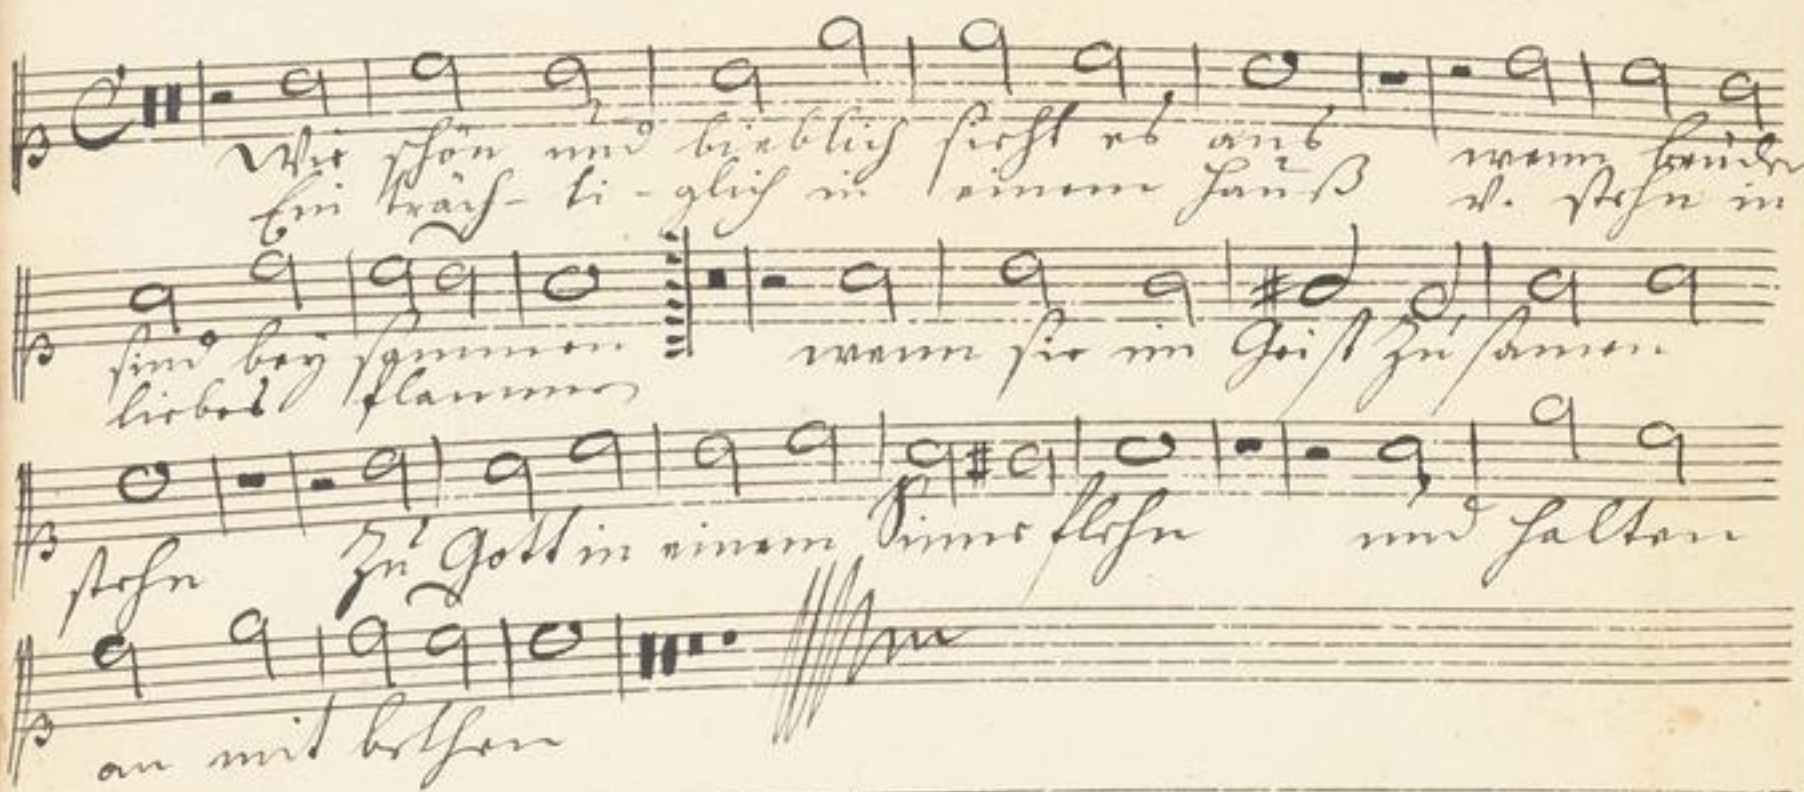 Wie schön und lieblich sieht es aus wenn brüder
Ein träch- ti- glich in einem Hauß v. stehn in
sind bey sammen wenn sie im Geist zu samen
liebes flammen
stehn Zu Gott in einem Sinne flehn und halten
an mit bethen